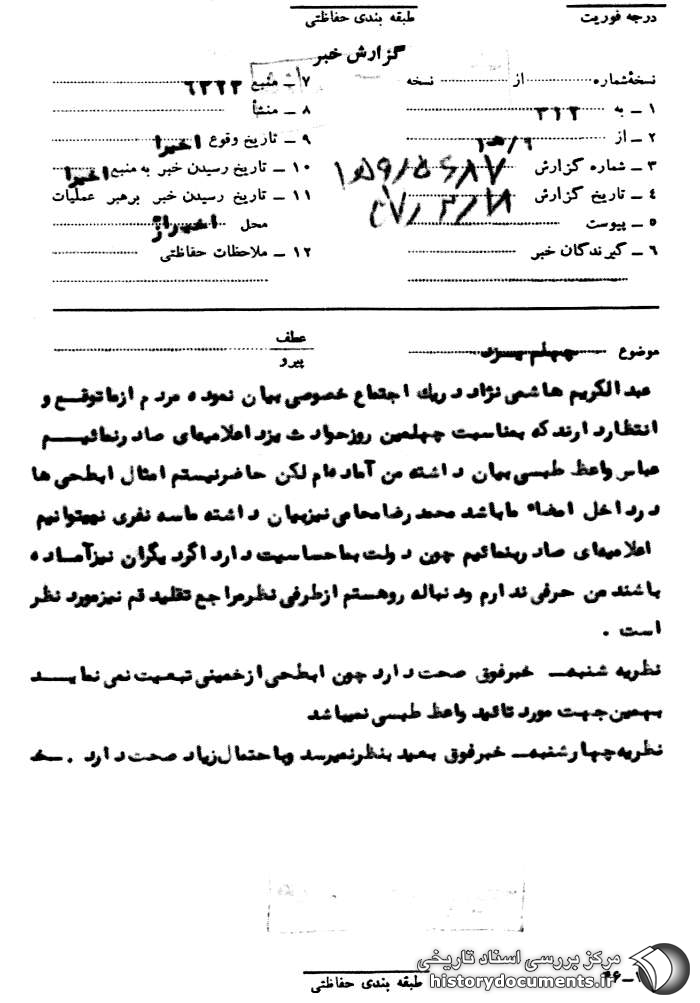 درجه فوریت
طبقه بندی حفاظتی
گزارش خبر
نسخهٔشماره از نسخه
۱ ـ به ۳۱۲
۲ ـ از ۹/ﻫ۱
۳ ـ شماره گزارش
۴ ـ تاریخ گزارش
۵ ـ پیوست
۶ ـ گیرندگان خبر
۷ ـ منبع
۸ ـ منشأ
۹ ـ تاریخ وقوع اخیرا
۱۰ ـ تاریخ رسیدن خبر به منبع اخیرا
۱۱ ـ تاریخ رسیدن خبر برهبر عملیات
محل
۱۲ ـ ملاحظات حفاظتی
موضوع چهلم یزد
عطف
پیرو
عبدالکریم هاشمی نژاد در یک اجتماع خصوصی بیان نموده مردم از ما توقع و
انتظار دارند که بمناسبت چهلمین روز حوادث یزد اعلامیه‌ای صادر نمائیم
عباس واعظ طبسی بیان داشته من آماده‌ام لکن حاضر نیستم امثال ابطحی ها
در داخل امضاء ما باشد محمد رضا محامی نیز بیان داشته ما سه نفری نمیتوانیم
اعلامیه‌ای صادر بنمائیم چون دولت بما حساسیت دارد اگر دیگران نیز آماده
باشند من حرفی ندارم و دنباله رو هستم از طرفی نظر مراجع تقلید قم نیز مورد نظر
است .
نظریه شنبه ـ خبر فوق صحت دارد چون ابطحی از خمینی تبعیت نمی نماید
بهمین جهت مورد تائید واعظ طبسی نمیباشد
نظریه چهارشنبه ـ خبر فوق بعید بنظر نمیرسد و باحتمال زیاد صحت دارد .
طبقه بندی حفاظتی
مرکز بررسی اسناد تاریخی
historydocuments.ir